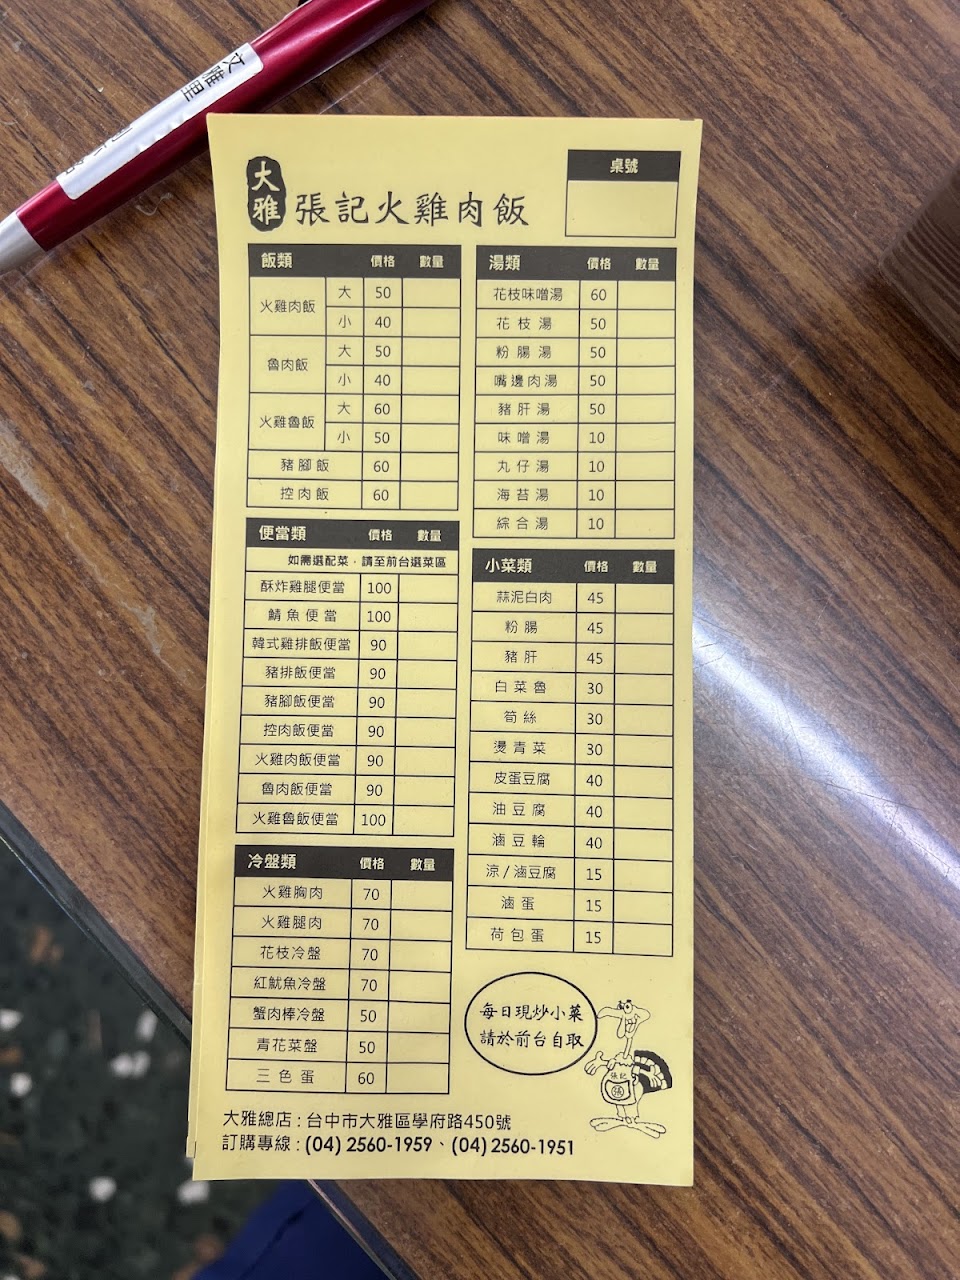 文雅里
大雅
張記火雞肉飯
桌號
飯類 價格 數量
火雞肉飯 大 50
小 40
魯肉飯 大 50
小 40
火雞魯飯 大 60
小 50
豬腳飯 60
控肉飯 60
便當類 價格 數量
如需選配菜，請至前台選菜區
酥炸雞腿便當 100
鯖魚便當 100
韓式雞排飯便當 90
豬排飯便當 90
豬腳飯便當 90
控肉飯便當 90
火雞肉飯便當 90
魯肉飯便當 90
火雞魯飯便當 100
冷盤類 價格 數量
火雞胸肉 70
火雞腿肉 70
花枝冷盤 70
紅魷魚冷盤 70
蟹肉棒冷盤 50
青花菜盤 50
三色蛋 60
湯類 價格 數量
花枝味噌湯 60
花枝湯 50
粉腸湯 50
嘴邊肉湯 50
豬肝湯 50
味噌湯 10
丸仔湯 10
海苔湯 10
綜合湯 10
小菜類 價格 數量
蒜泥白肉 45
粉腸 45
豬肝 45
白菜魯 30
筍絲 30
燙青菜 30
皮蛋豆腐 40
油豆腐 40
滷豆輪 40
涼/滷豆腐 15
滷蛋 15
荷包蛋 15
每日現炒小菜
請於前台自取
張記
張
大雅總店：台中市大雅區學府路450號
訂購專線：(04) 2560-1959、(04) 2560-1951